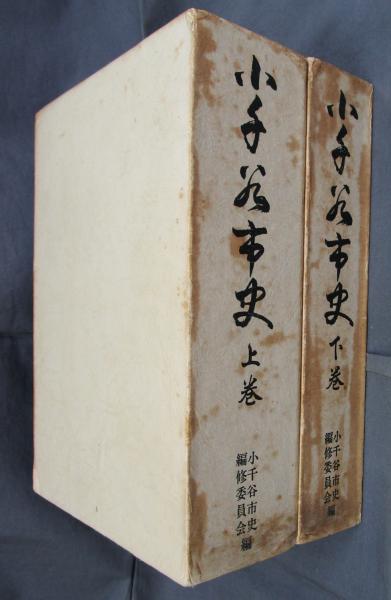 小千谷市史 上巻
小千谷市史
編修委員会 編
小千谷市史 下巻
小千谷市史
編修委員会 編